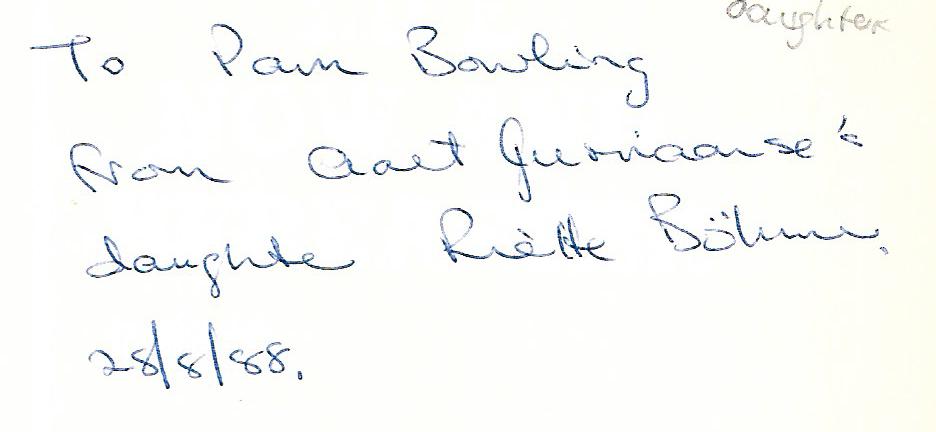 daughter
To Pam Bowling
from Aaet Jurriaanse's
daughte Riètte Böhme.
28/8/88.